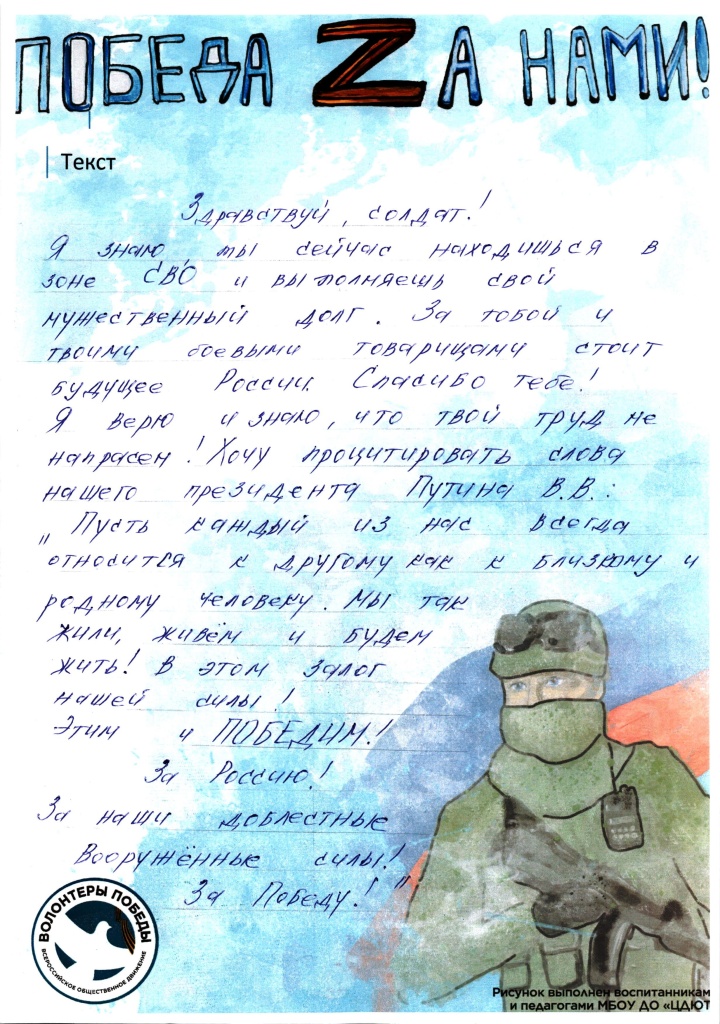 ПОБЕДА ZА НАМИ!
Текст
Здравствуй, солдат!
Я знаю, ты сейчас находишься в
зоне СВО и выполняешь свой
мужественный долг. За тобой и
твоими боевыми товарищами стоит
будущее России. Спасибо тебе!
Я верю и знаю, что твой труд не
напрасен! Хочу процитировать слова
нашего президента Путина В.В.:
„Пусть каждый из нас всегда
относится к другому как к близкому и
родному человеку. Мы так
жили, живём и будем
жить! В этом залог
нашей силы!
Этим и ПОБЕДИМ!
За Россию!
За наши доблестные
Вооружённые силы!
За Победу!"
ВОЛОНТЕРЫ ПОБЕДЫ
ВСЕРОССИЙСКОЕ ОБЩЕСТВЕННОЕ ДВИЖЕНИЕ
Рисунок выполнен воспитанникам
и педагогами МБОУ ДО «ЦДЮТ